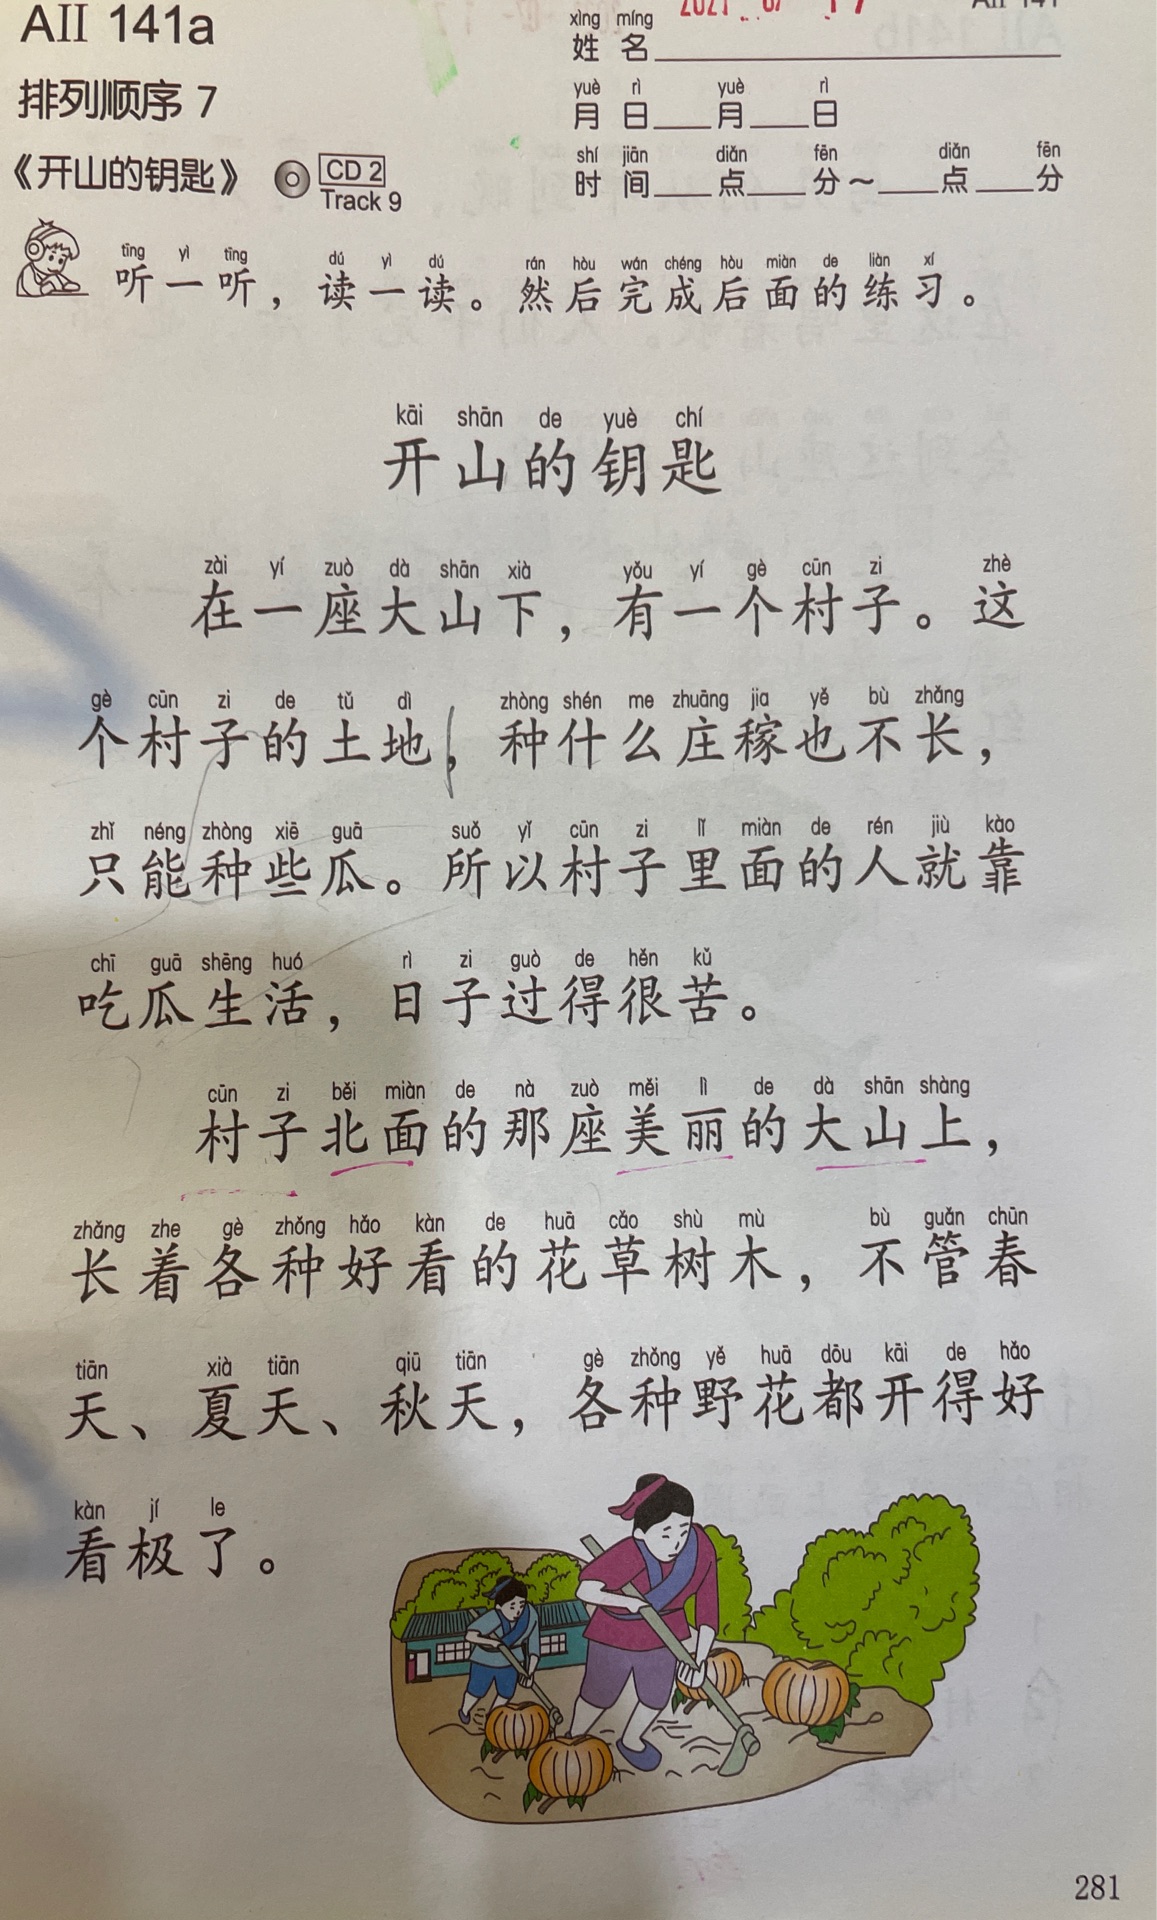 AII 141a
排列顺序 7
《开山的钥匙》
CD 2
Track 9
xìng míng
姓 名
yuè rì yuè rì
月 日 月 日
shí jiān diǎn fēn diǎn fēn
时 间 点 分～ 点 分
tīng yì tīng dú yì dú rán hòu wán chéng hòu miàn de liàn xí
听一听，读一读。然后完成后面的练习。
kāi shān de yuè chí
开山的钥匙
zài yí zuò dà shān xià yǒu yí gè cūn zi zhè
在一座大山下，有一个村子。这
gè cūn zi de tǔ dì zhòng shén me zhuāng jia yě bù zhǎng
个村子的土地，种什么庄稼也不长，
zhǐ néng zhòng xiē guā suǒ yǐ cūn zi lǐ miàn de rén jiù kào
只能种些瓜。所以村子里面的人就靠
chī guā shēng huó rì zi guò de hěn kǔ
吃瓜生活，日子过得很苦。
cūn zi běi miàn de nà zuò měi lì de dà shān shàng
村子北面的那座美丽的大山上，
zhǎng zhe gè zhǒng hǎo kàn de huā cǎo shù mù bù guǎn chūn
长着各种好看的花草树木，不管春
tiān xià tiān qiū tiān gè zhǒng yě huā dōu kāi de hǎo
天、夏天、秋天，各种野花都开得好
kàn jí le
看极了。
281